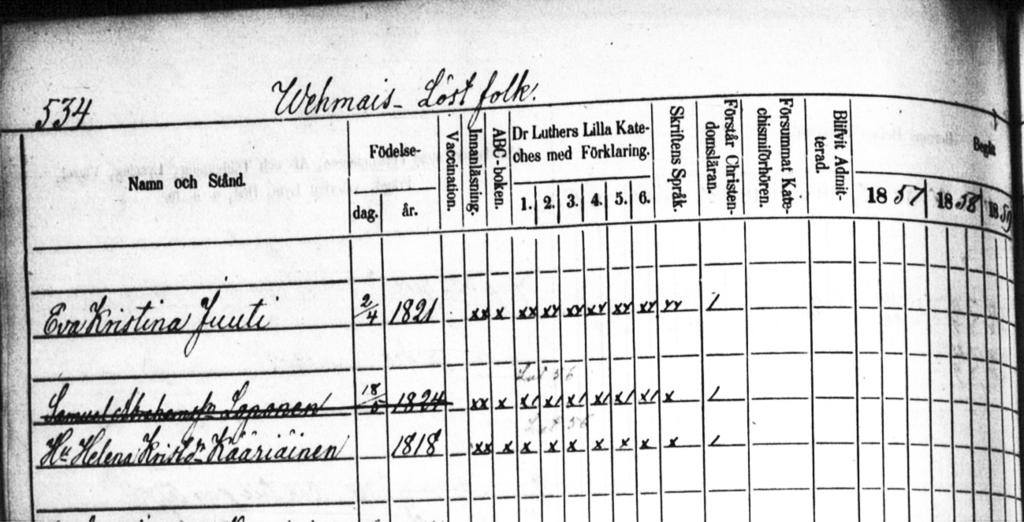 534
Wehmais - Löst folk.
Namn och Stånd.
Födelse-
dag. år.
Vaccination.
Innanläsning.
ABC-boken.
Dr Luthers Lilla Kate-
ches med Förklaring.
1. 2. 3. 4. 5. 6.
Skriftens Språk.
Förstår Christen-
domsläran.
Försummat Kate-
chismiförhören.
Blifvit Admit-
terad.
Begått
1857 1858 1859
Eva Kristina Juuti 2/4 1821 xx x xx xx xx xx xx xx xx /
Lut 56
Samuel Abrahamss Loponen 18/5 1824 xx x x/ x/ x/ x/ x/ x/ x /
Lut 56
Hu Helena Kristdr Kääriäinen 1818 xx x x x x x x x x /